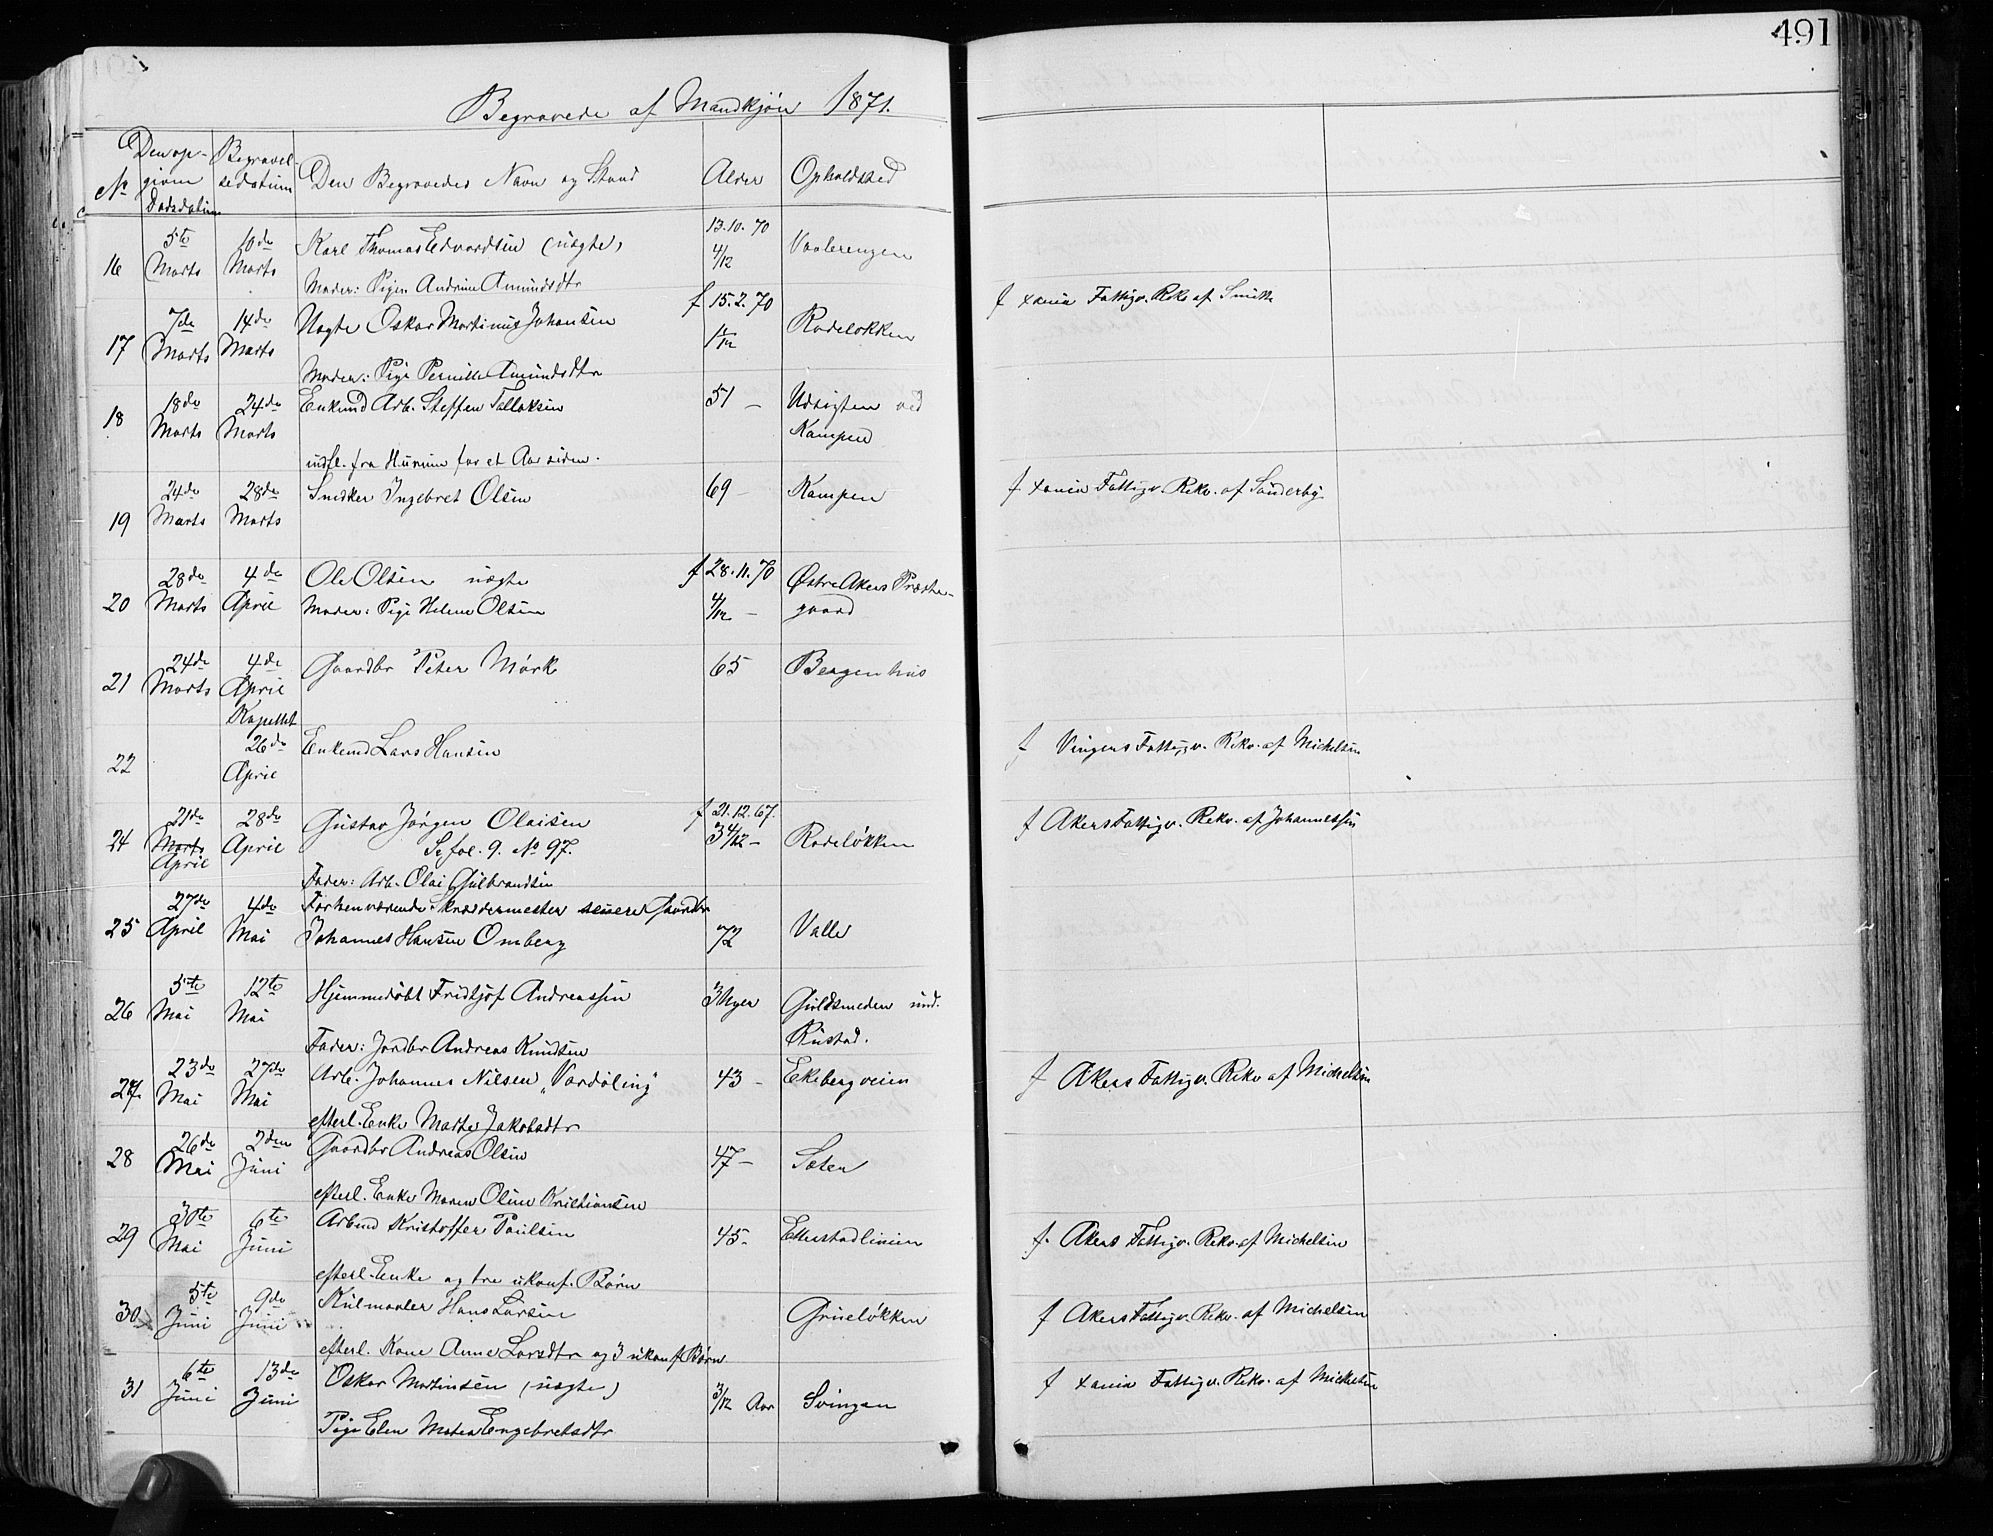 491
Begravede af Mandkjøn 1871.
No Den op-givne Dødsdatum Begravel-sedatum Den Begravedes Navn og Stand Alder Opholdsted
16 5te Marts 10de Marts Karl Thomas Edvardsen (uægte) 13.10.70 4/12 Vaalerengen
Moder: Pigen Andrine Amundsdtr
17 7de Marts 14de Marts Uægte Oskar Martinus Johansen f 15.2.70 1 1/12 Rodeløkken f Xania Fattigv. Rekv af Smith
Moder: Pige Pernille Amundsdtr
18 18de Marts 24de Marts Enkemd Arb. Steffen Talloksen 51 – Udsigten ved Kampen
indfl. fra Hurum for et Aar siden.
19 24de Marts 28de Marts Snedker Ingebret Olsen 69 – Kampen f Xania Fattigv. Rekv. af Sønderby
20 28de Marts 4de April Ole Olsen uægte f 28.11.70 4/12 – Østre Akers Præste-gaard
Moder: Pige Helene Olsen
21 24de Marts 4de April Kapellet Gaardbr Peter Mørk 65 Bergenhus
22 26de April Enkemd Lars Hansen f Vingers Fattigv. Rekv. af Michelsen
24 21de Marts April 28de April Gustav Jørgen Olaisen f 21.12.67. 3 4/12 – Rodeløkken f Akers Fattigv. Rekv. af Johannessen
Se fol. 9. No 97.
Fader: Arb. Olai Gulbrandsen
25 27de April 4de Mai Forhenværende Skræddermester senere Gaardbr
Johannes Hansen Omberg 72 Valle
26 5te Mai 12te Mai Hjemmedøbt Fridtjof Andreassen 3 Uger Guldsmeden und. Rustad.
Fader: Jordbr Andreas Knudsen
27 23de Mai 27de Mai Arb. Johannes Nilsen "Vardøling" 43 – Ekebergveien f Akers Fattigv. Rekv af Michelsen
efterl. Enke Marte Jakobsdtr
28 26de Mai 2den Juni Gaardbr Andreas Olsen 47 –
efterl. Enke Maren Oline Kristiansen
29 30te Mai 6te Juni Arbmd Kristoffer Paulsen 45 – Etterstadlinien f. Akers Fattigv. Rekv. af Michelsen
efterl. Enke og tre ukonf. Børn
30 5te Juni 9de Juni Kulmaaler Hans Larsen Grueløkken f Akers Fattigv. Rekv. af Michelsen
efterl. Kone Anne Larsdtr og 3 ukonf Børn
31 6te Juni 13de Juni Oskar Martinsen (uægte) 3/12 Aar Svingen f Xania Fattigv. Rekv. af Michelsen
Pige Elen Matea Engebretsdtr